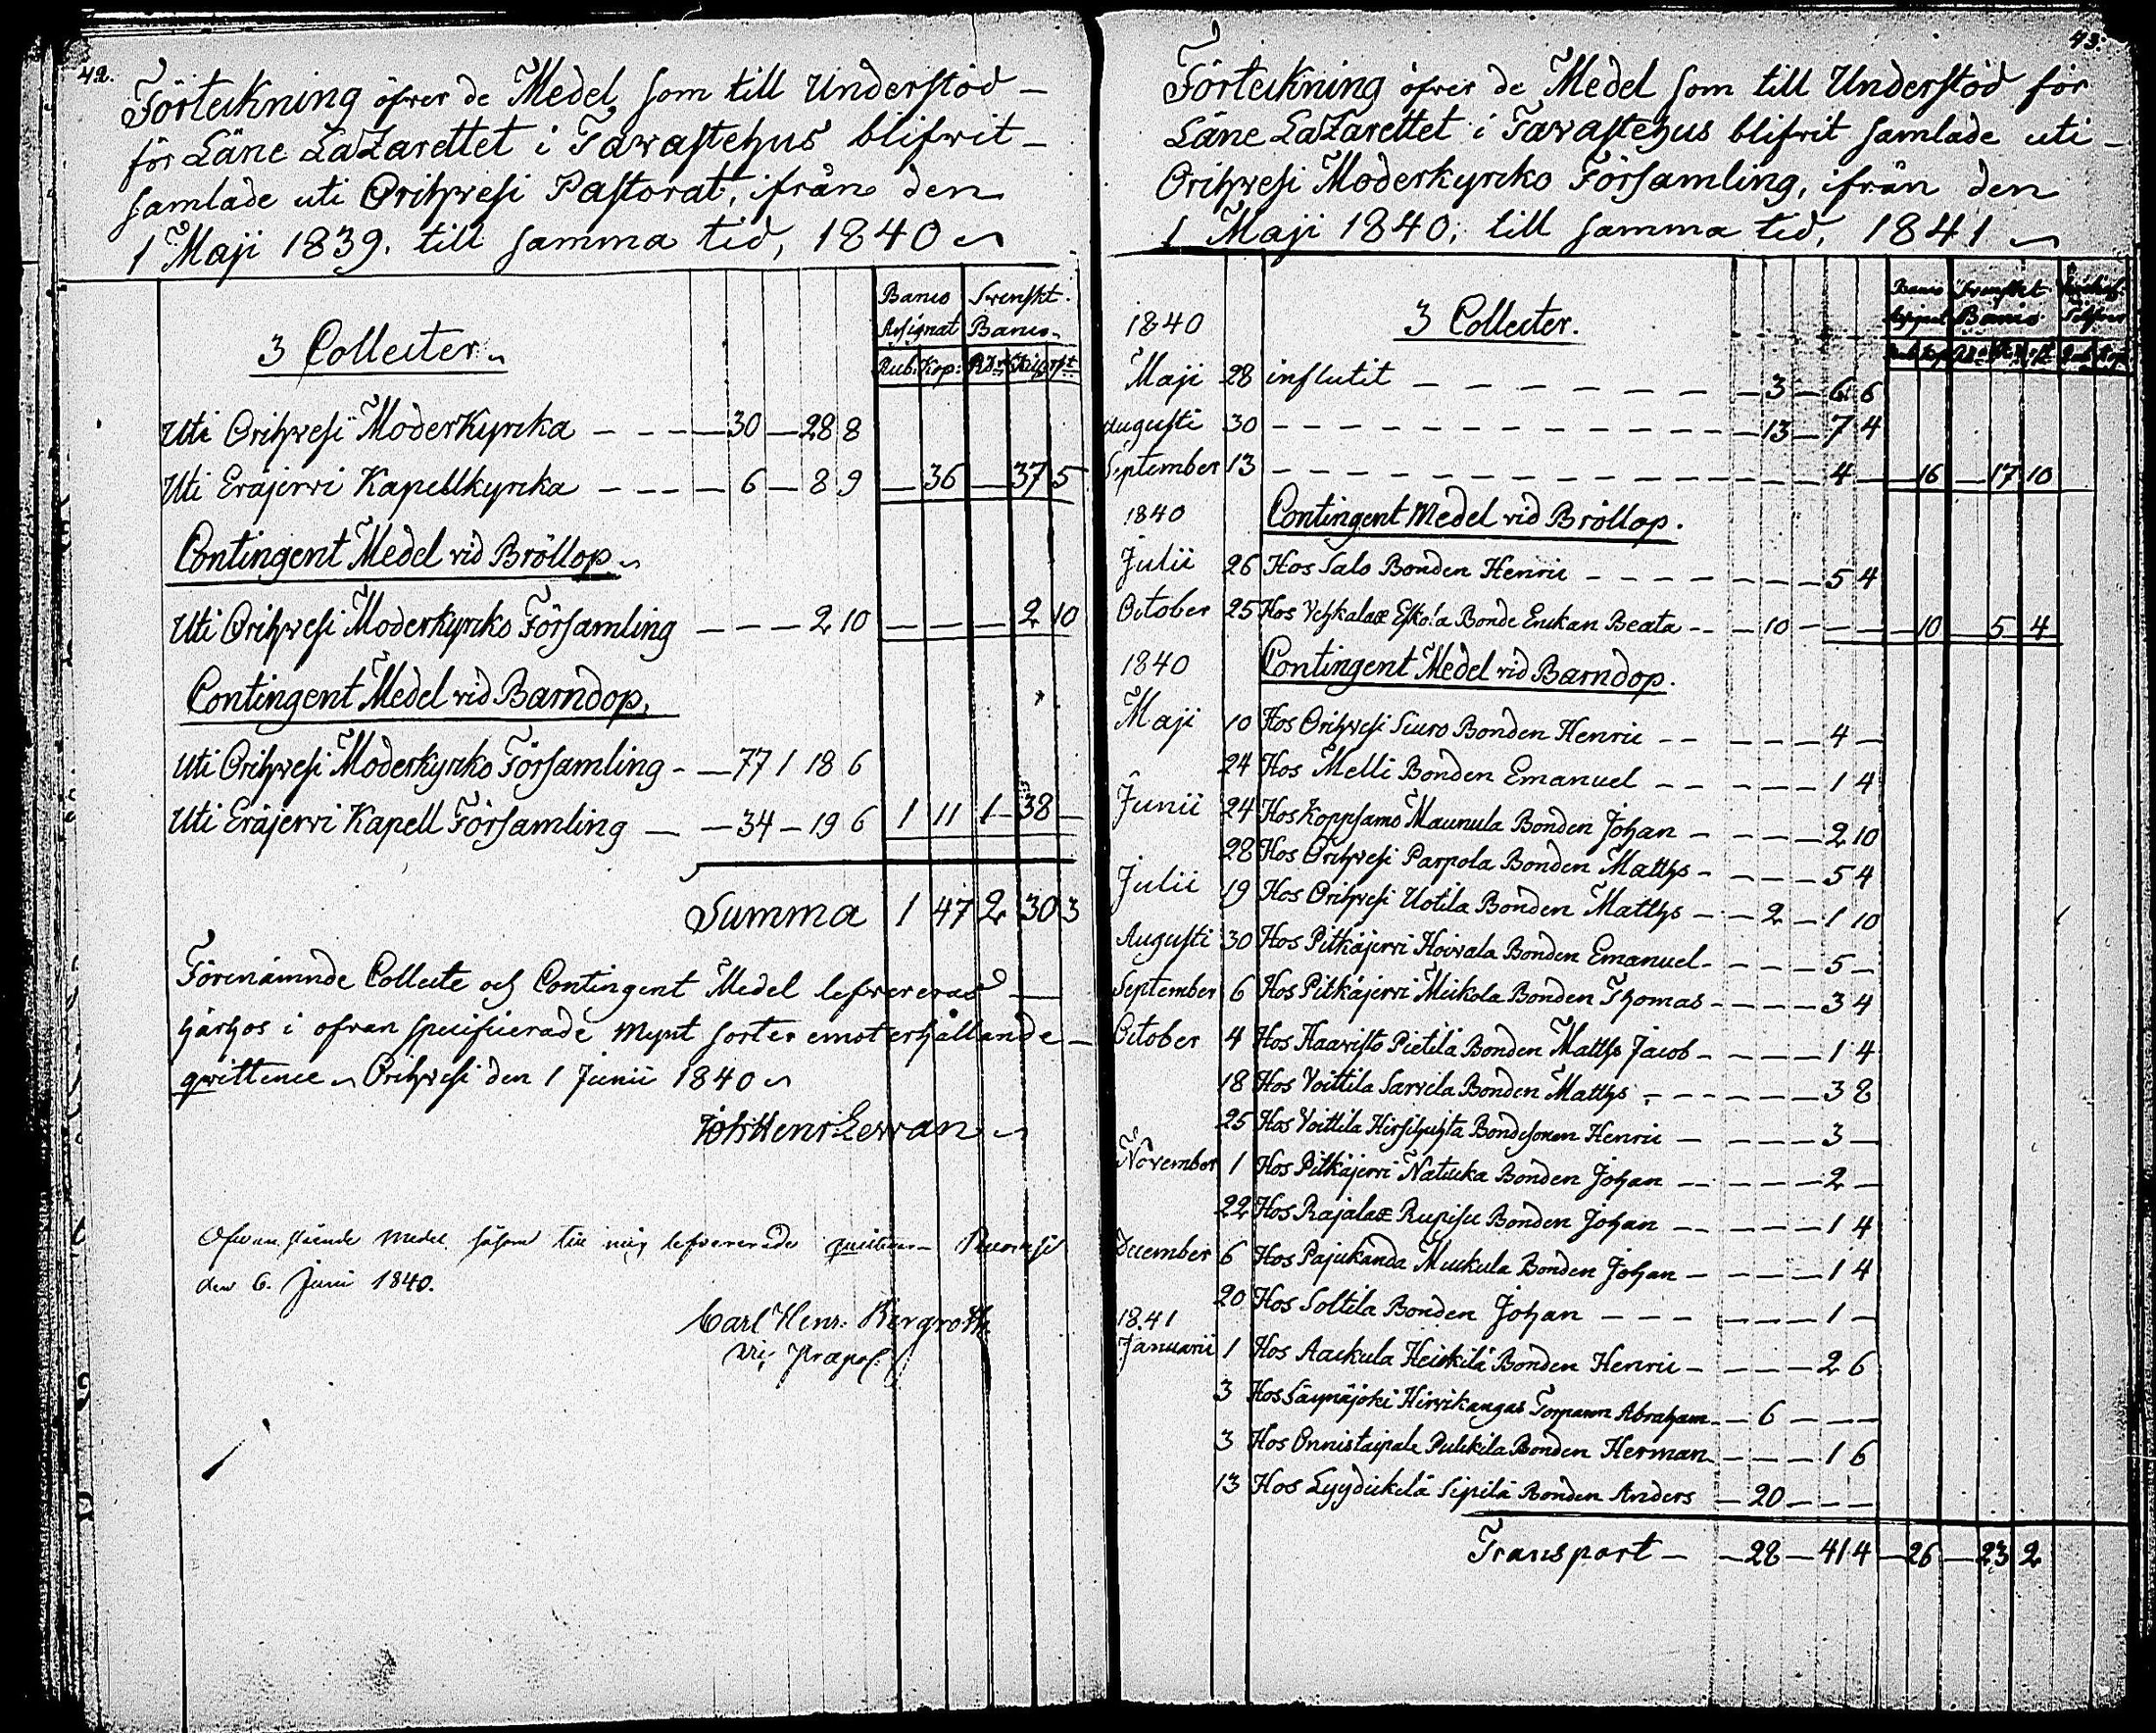 42.
Förteckning öfver de Medel som till Understöd –
för Läne Lazarettet i Tavastehus blifvit –
samlade uti Orihvesi Pastorat, ifrån den
1 Maji 1839. till samma tid, 1840
Banco Svenskt.
3 Collecter. Assignat Banco.
Rub. Kop: Rdr sk rst
Uti Orihvesi Moderkyrcka – – – – 30 – 28 8
Uti Eräjervi Kapellkyrcka – – – – 6 – 8 9 – 36 – 37 5
Contingent Medel vid Bröllop
Uti Orihvesi Moderkyrko Församling – – – 2 10 – – – 2 10
Contingent Medel vid Barndop.
Uti Orihvesi Moderkyrko Församling – – 77 1 18 6
Uti Eräjervi Kapell Församling – – 34 – 19 6 1 11 1 38 –
Summa 1 47 2 30 3
Förenämnde Collecte och Contingent Medel lefvereras –
härhos i ofvan specificerade mynt sorter emot erhållande –
qvittence Orihvesi den 1 Junii 1840
Joh Henr Levvan
Ofvanstående Medel såsom till mig lefvererade quitteras Ruovesi
den 6. Juni 1840.
Carl Henr. Bergroth.
Vic. Præpos.
43.
Förteckning öfver de Medel som till Understöd för
Läne Lazarettet i Tavastehus blifvit samlade uti –
Orihvesi Moderkyrko Församling, ifrån den
1 Maji 1840, till samma tid, 1841
Banco Svenskt
1840 3 Collecter. Assignat Banco Silfver
Rub. Kop Rdr sk rst Rub. Kop
Maji 28 influtit – – – – – – – 3 – 6 6
Augusti 30 – – – – – – – – 13 – 7 4
September 13 – – – – – – – – 4 – – 16 – 17 10
1840 Contingent Medel vid Bröllop.
Julii 26 Hos Salo Bonden Henric – – – – – – – 5 4
October 25 Hos Eskola Bonde Enckan Beata – – – 10 – – – – 10 – 5 4
1840 Contingent Medel vid Barndop.
Maji 10 Hos Orihvesi Siuro Bonden Henric – – – – – 4 –
24 Hos Melli Bonden Emanuel – – – – – 1 4
Junii 24 Hos Koppsamo Maunula Bonden Johan – – – – 2 10
28 Hos Orihvesi Parpola Bonden Matths – – – – 5 4
Julii 19 Hos Orihvesi Uotila Bonden Matths – – 2 – 1 10
Augusti 30 Hos Pitkäjervi Hoivala Bonden Emanuel – – – – 5 –
September 6 Hos Pitkäjervi Meikola Bonden Thomas – – – – 3 4
October 4 Hos Haavisto Pietilä Bonden Matths Jacob – – – – 1 4
18 Hos Voittila Sarvela Bonden Matths – – – – – 3 8
25 Hos Voittila Hirsihuhta Bondesonen Henric – – – – 3 –
November 1 Hos Pitkäjervi Natucka Bonden Johan – – – – – 2 –
22 Hos Bonden Johan – – – – – 1 4
December 6 Hos Pajukanda Muckula Bonden Johan – – – – 1 4
20 Hos Soltila Bonden Johan – – – – – – 1 –
1841
Januarii 1 Hos Aackula Heickilä Bonden Henric – – – – 2 6
3 Hos Säynäjoki Hirvikangas Torparen Abraham – – 6 – – –
3 Hos Onnistaipale Pulckila Bonden Herman – – – – 1 6
13 Hos Lyydickelä Sipilä Bonden Anders – 20 – – –
Transport – – 28 – 41 4 – 26 – 23 2